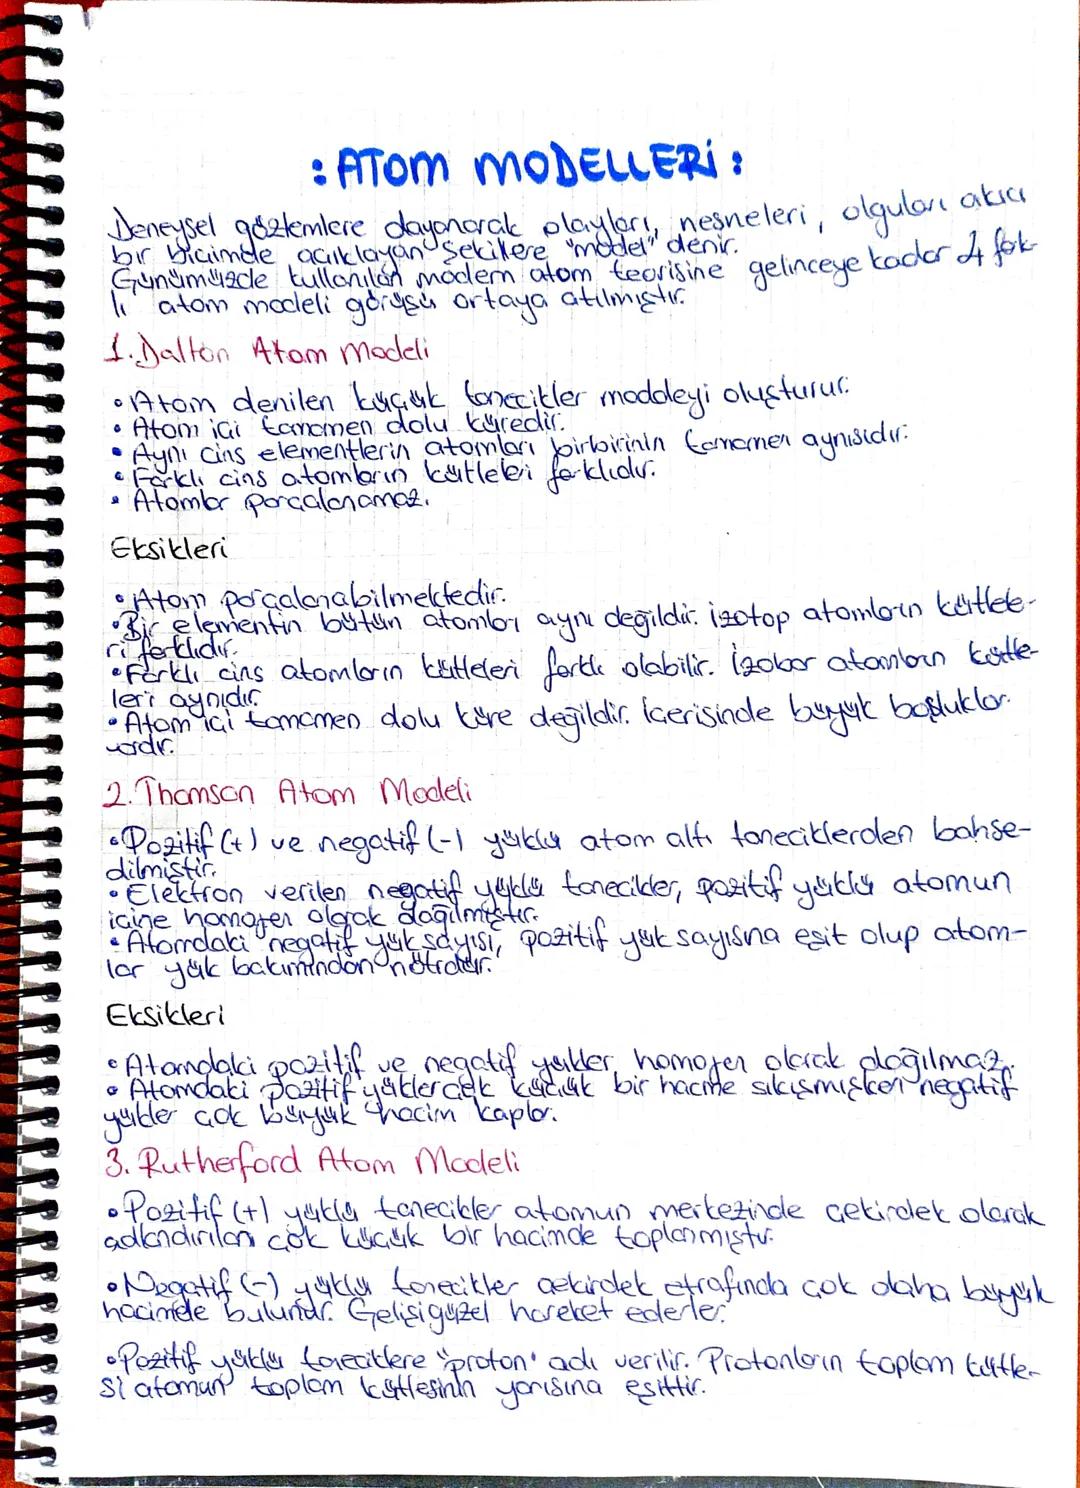 : ATOM MODELLERİ :
Deneysel gözlemlere dayanarak olayları, nesneleri, olguları akıcı
bir biçimde açıklayan şekillere "model" denir.
Günümüzde kullanılan modern atom teorisine gelinceye kadar 4 fark-
lı atom modeli görüşü ortaya atılmıştır.
1. Dalton Atom Modeli
• Atom denilen küçük tanecikler maddeyi oluşturur.
• Atom içi tamamen dolu küredir.
• Aynı cins elementlerin atomları birbirinin tamamen aynısıdır.
• Farklı cins atomların kütleleri farklıdır.
• Atomlar parçalanamaz.
Eksikleri
• Atom parçalanabilmektedir.
• Bir elementin bütün atomları aynı değildir. İzotop atomların kütlele-
ri farklıdır.
• Farklı cins atomların kütleleri farklı olabilir. İzobar atomların kütle-
leri aynıdır.
• Atom içi tamamen dolu küre değildir. İçerisinde büyük boşluklar
vardır.
2. Thomson Atom Modeli
• Pozitif (+) ve negatif (-) yüklü atom altı taneciklerden bahse-
dilmiştir.
• Elektron verilen negatif yüklü tanecikler, pozitif yüklü atomun
içine homojen olarak dağılmıştır.
• Atomdaki negatif yük sayısı, pozitif yük sayısına eşit olup atom-
lar yük bakımından nötrdür.
Eksikleri
• Atomdaki pozitif ve negatif yükler homojen olarak dağılmaz.
• Atomdaki pozitif yükler çok küçük bir hacme sıkışmışken negatif
yükler çok büyük hacim kaplar.
3. Rutherford Atom Modeli
• Pozitif (+) yüklü tanecikler atomun merkezinde çekirdek olarak
adlandırılan çok küçük bir hacimde toplanmıştır.
• Negatif (-) yüklü tanecikler çekirdek etrafında çok daha büyük
hacimde bulunur. Gelişigüzel hareket ederler.
• Pozitif yüklü taneciklere "proton" adı verilir. Protonların toplam kütle-
si atomun toplam kütlesinin yarısına eşittir.